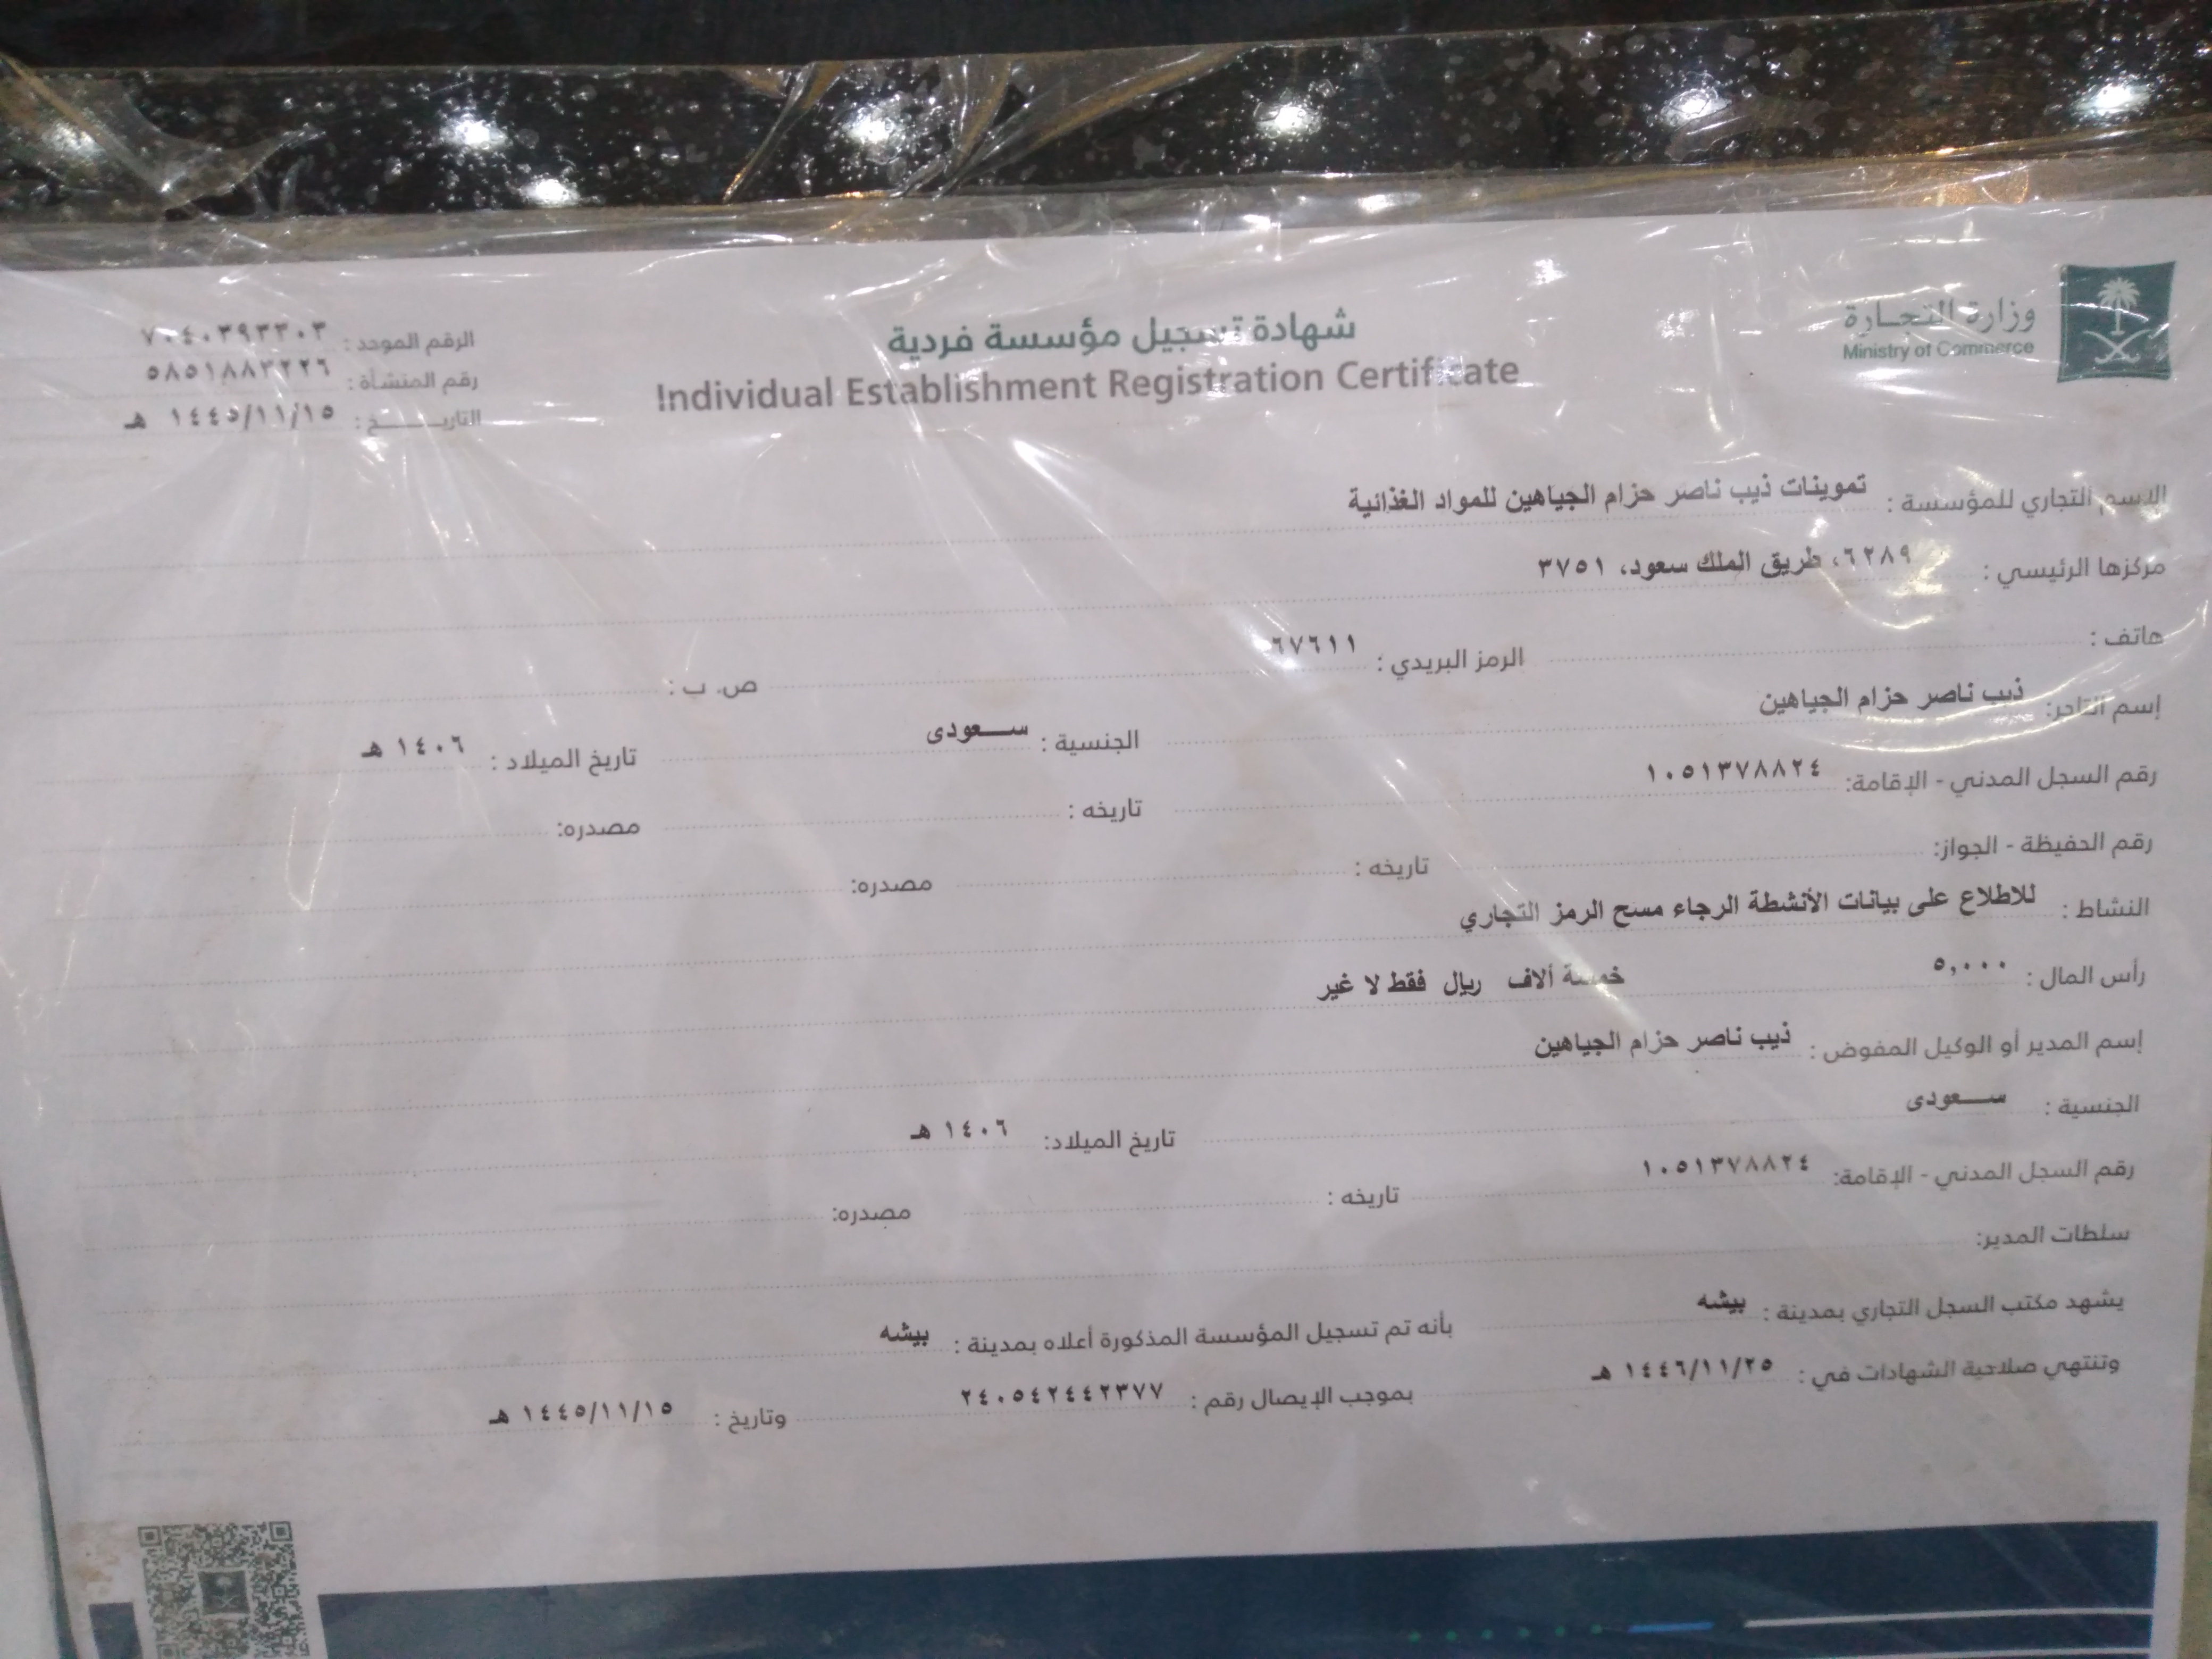 وزارة التجارة
Ministry of Commerce
شهادة تسجيل مؤسسة فردية
Individual Establishment Registration Certificate
الرقم الموحد : ٧٠٤٠٣٩٣٣٠٣
رقم المنشأة : ٥٨٥١٨٨٣٢٢٦
التاريـــــخ : ١٤٤٥/١١/١٥ هـ
الاسم التجاري للمؤسسة : تموينات ذيب ناصر حزام الجياهين للمواد الغذائية
مركزها الرئيسي : ٦٢٨٩، طريق الملك سعود، ٣٧٥١
هاتف : الرمز البريدي : ٦٧٦١١ ص. ب :
إسم التاجر: ذيب ناصر حزام الجياهين الجنسية : ســـعودى تاريخ الميلاد : ١٤٠٦ هـ
رقم السجل المدني - الإقامة: ١٠٥١٣٧٨٨٢٤ تاريخه : مصدره:
رقم الحفيظة - الجواز: تاريخه : مصدره:
النشاط : للاطلاع على بيانات الأنشطة الرجاء مسح الرمز التجاري
رأس المال : ٥,٠٠٠ خمسة ألاف ريال فقط لا غير
إسم المدير أو الوكيل المفوض : ذيب ناصر حزام الجياهين
الجنسية : ســـعودى تاريخ الميلاد: ١٤٠٦ هـ
رقم السجل المدني - الإقامة: ١٠٥١٣٧٨٨٢٤ تاريخه : مصدره:
سلطات المدير:
يشهد مكتب السجل التجاري بمدينة : بيشه بأنه تم تسجيل المؤسسة المذكورة أعلاه بمدينة : بيشه
وتنتهي صلاحية الشهادات في : ١٤٤٦/١١/٢٥ هـ بموجب الإيصال رقم : ٢٤٠٥٤٢٤٤٢٣٧٧ وتاريخ : ١٤٤٥/١١/١٥ هـ